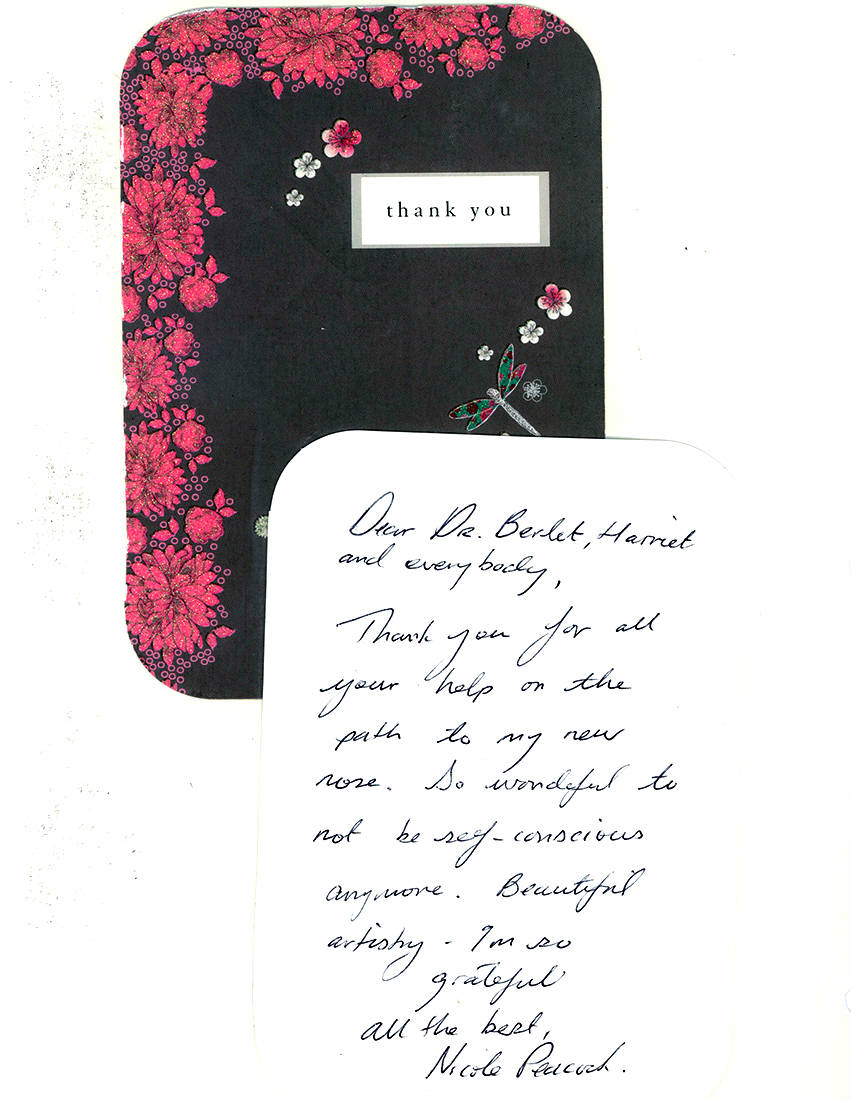 thank you
Dear Dr. Berlet, Harriet
and everybody,
Thank you for all
your help on the
path to my new
nose. So wonderful to
not be self-conscious
anymore. Beautiful
artistry - I'm so
grateful
all the best,
Nicole Peacock.